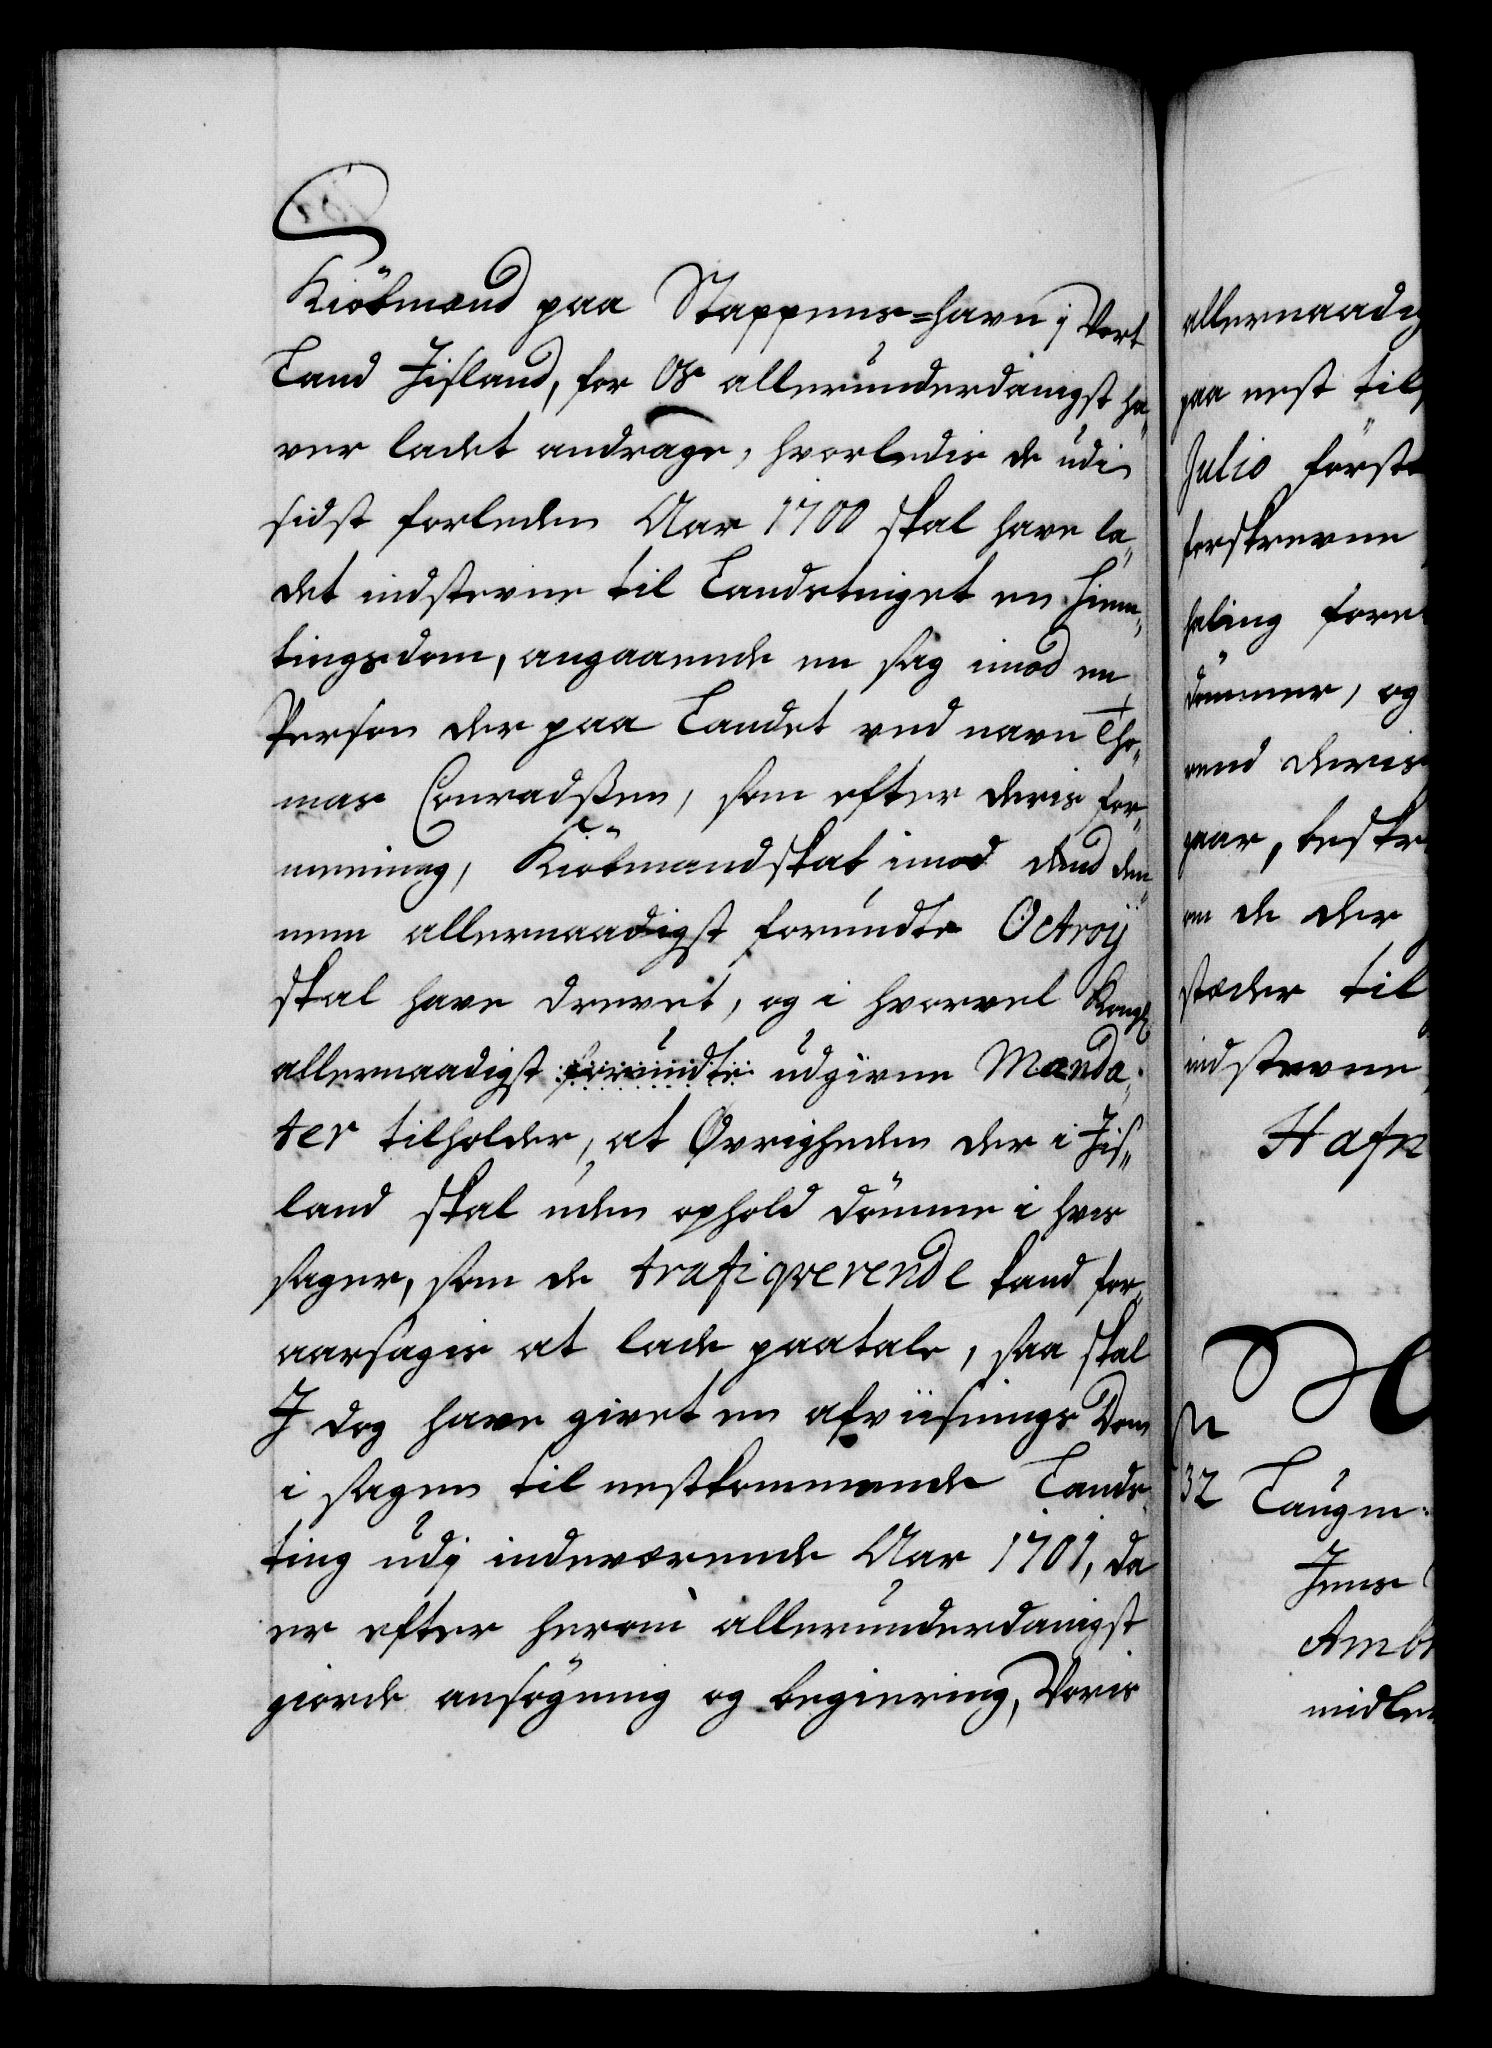 Kiöbmænd paa Stappens=havn j Vort
Land Jisland, for Os allerunderdanigst ha„
ver ladet andrage, hvorledis de udi
sidst forleden Aar 1700 skal have la„
det indstevne til Landstinget en Hiem„
tingsdom, angaaende en sag imod en
Person der paa Landet ved navn Tho„
mas Conradßen, som efter deris for„
meening, Kiöbmandskab imod dend den„
nem allernaadigst forundte Octroij
skal have drevet, og i hvorvel Kongl
allernaadigst forundte udgivne Manda„
ter tilholder, at Øvrigheden der i Jis„
land skal uden ophold dömme i hvis
sager, som de trafiqverende kand for„
aarsagis at lade paatale, saa skal
J dog have givet en afviisnings Dom
i sagen til nestkommende Lands„
ting udj indeværende Aar 1701, da
er efter herom allerunderdanigst
giorde ansögning og begiering, Voris
allernaadig
paa nest til
Julio först
forskrevne
haling fore
dömmer, og
vend deris
paar, beskr
om de der
stæder til
indstevne
Hafn
32 Laugm
Jens
Amb
midle